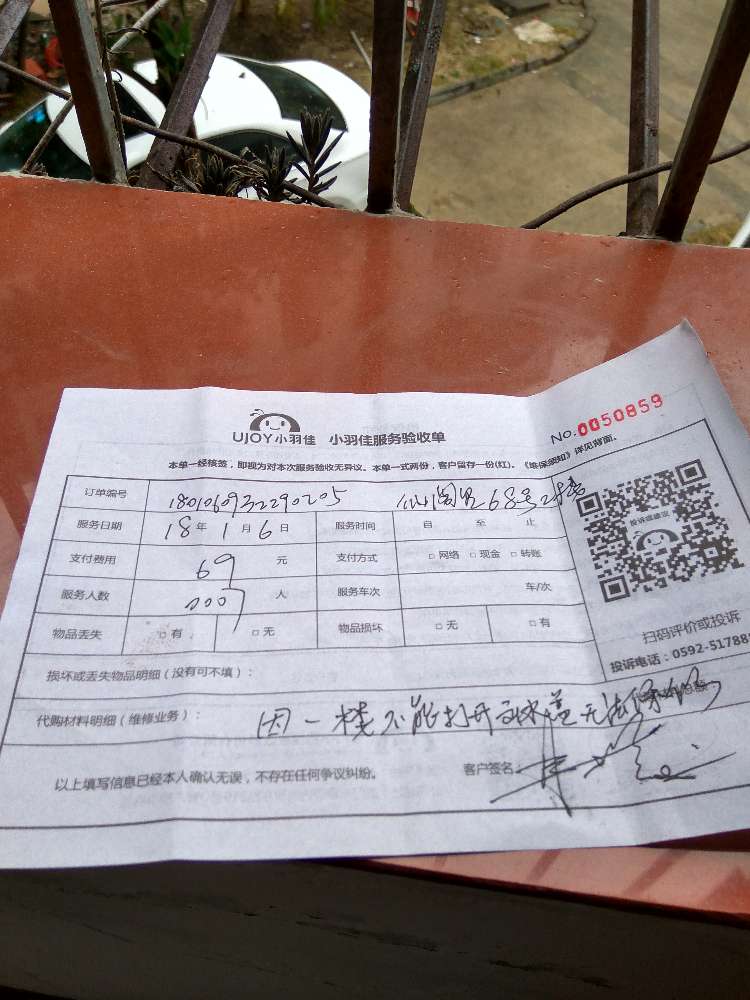 UJOY小羽佳 小羽佳服务验收单
No.0050859
本单一经核签，即视为对本次服务验收无异议。本单一式两份，客户留存一份(红)。《维保须知》详见背面。
订单编号 1801060932290205 68号
服务日期 18年1月6日 服务时间 自 至 止
支付费用 69 元 支付方式 □网络 □现金 □转账
服务人数 0007 人 服务车次 车/次
物品丢失 □有 □无 物品损坏 □无 □有
投诉或建议
扫码评价或投诉
投诉电话：0592-51788
损坏或丢失物品明细（没有可不填）：
代购材料明细（维修业务）： 因一楼不能打开 盖无法
以上填写信息已经本人确认无误，不存在任何争议纠纷。 客户签名：